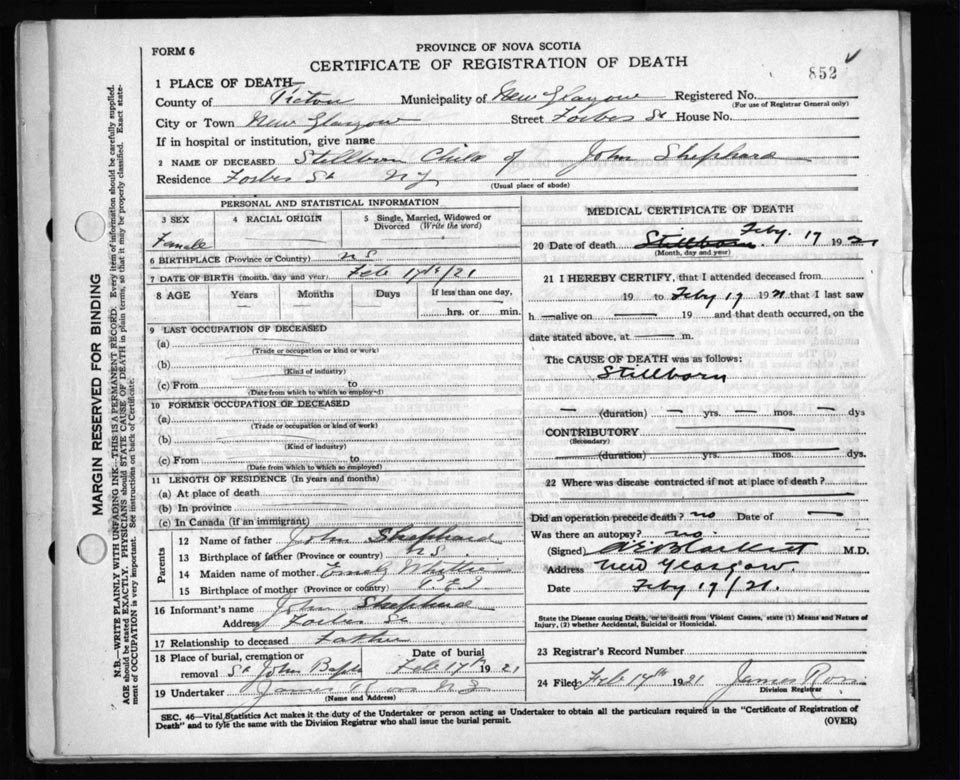 FORM 6
PROVINCE OF NOVA SCOTIA
CERTIFICATE OF REGISTRATION OF DEATH
852
1 PLACE OF DEATH
County of Pictou Municipality of New Glasgow Registered No.
(For use of Registrar General only)
City or Town New Glasgow Street Forbes St House No.
If in hospital or institution, give name
2 NAME OF DECEASED Stillborn Child of John Shephard
Residence Forbes St N G
(Usual place of abode)
PERSONAL AND STATISTICAL INFORMATION
3 SEX 4 RACIAL ORIGIN 5 Single, Married, Widowed or Divorced (Write the word)
Female
6 BIRTHPLACE (Province or Country) N S
7 DATE OF BIRTH (month, day and year) Feb 17th/21
8 AGE Years Months Days If less than one day,
hrs. or min.
9 LAST OCCUPATION OF DECEASED
(a)
(Trade or occupation or kind or work)
(b)
(Kind of industry)
(c) From to
(Date from which to which so employed)
10 FORMER OCCUPATION OF DECEASED
(a)
(Trade or occupation or kind of work)
(b)
(Kind of industry)
(c) From to
(Date from which to which so employed)
11 LENGTH OF RESIDENCE (In years and months)
(a) At place of death
(b) In province
(c) In Canada (if an immigrant)
Parents
12 Name of father John Shephard
13 Birthplace of father (Province or country) N S.
14 Maiden name of mother Emily
15 Birthplace of mother (Province or country) P E I
16 Informant's name John Shephard
Address Forbes St
17 Relationship to deceased Father
18 Place of burial, cremation or removal St John Date of burial Feb 17th 1921
19 Undertaker James Ross N G
(Name and Address)
MEDICAL CERTIFICATE OF DEATH
20 Date of death Stillborn. Feby. 17 1921
(Month, day and year)
21 I HEREBY CERTIFY, that I attended deceased from
19 to Feby 17 1921 that I last saw
h alive on 19 and that death occurred, on the
date stated above, at m.
The CAUSE OF DEATH was as follows:
Stillborn
(duration) yrs. mos. dys
CONTRIBUTORY
(Secondary)
(duration) yrs. mos. dys.
22 Where was disease contracted if not at place of death?
Did an operation precede death? no Date of
Was there an autopsy? no.
(Signed) M.D.
Address New Glasgow.
Date Feby 17/21.
State the Disease causing Death, or in death from Violent Causes, state (1) Means and Nature of
Injury, (2) whether Accidental, Suicidal or Homicidal.
23 Registrar's Record Number
24 Filed Feb 17th 1921 James Ross
Division Registrar
SEC. 46—Vital Statistics Act makes it the duty of the Undertaker or person acting as Undertaker to obtain all the particulars required in the "Certificate of Registration of
Death" and to fyle the same with the Division Registrar who shall issue the burial permit.
(OVER)
MARGIN RESERVED FOR BINDING
N.B.—WRITE PLAINLY WITH UNFADING INK—THIS IS A PERMANENT RECORD. Every item of information should be carefully supplied.
AGE should be stated EXACTLY. PHYSICIANS should STATE CAUSE OF DEATH in plain terms, so that it may be properly classified. Exact state-
ment of OCCUPATION is very important. See instructions on back of Certificate.